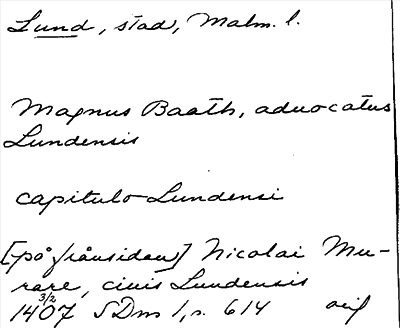 Lund, stad, Malm. l.
Magnus Baath, aduocatus
Lundensis
capitulo Lundensi
[på frånsidan] Nicolai Mu-
rare, ciuis Lundensis
3/2
1407 SDns 1, s. 614